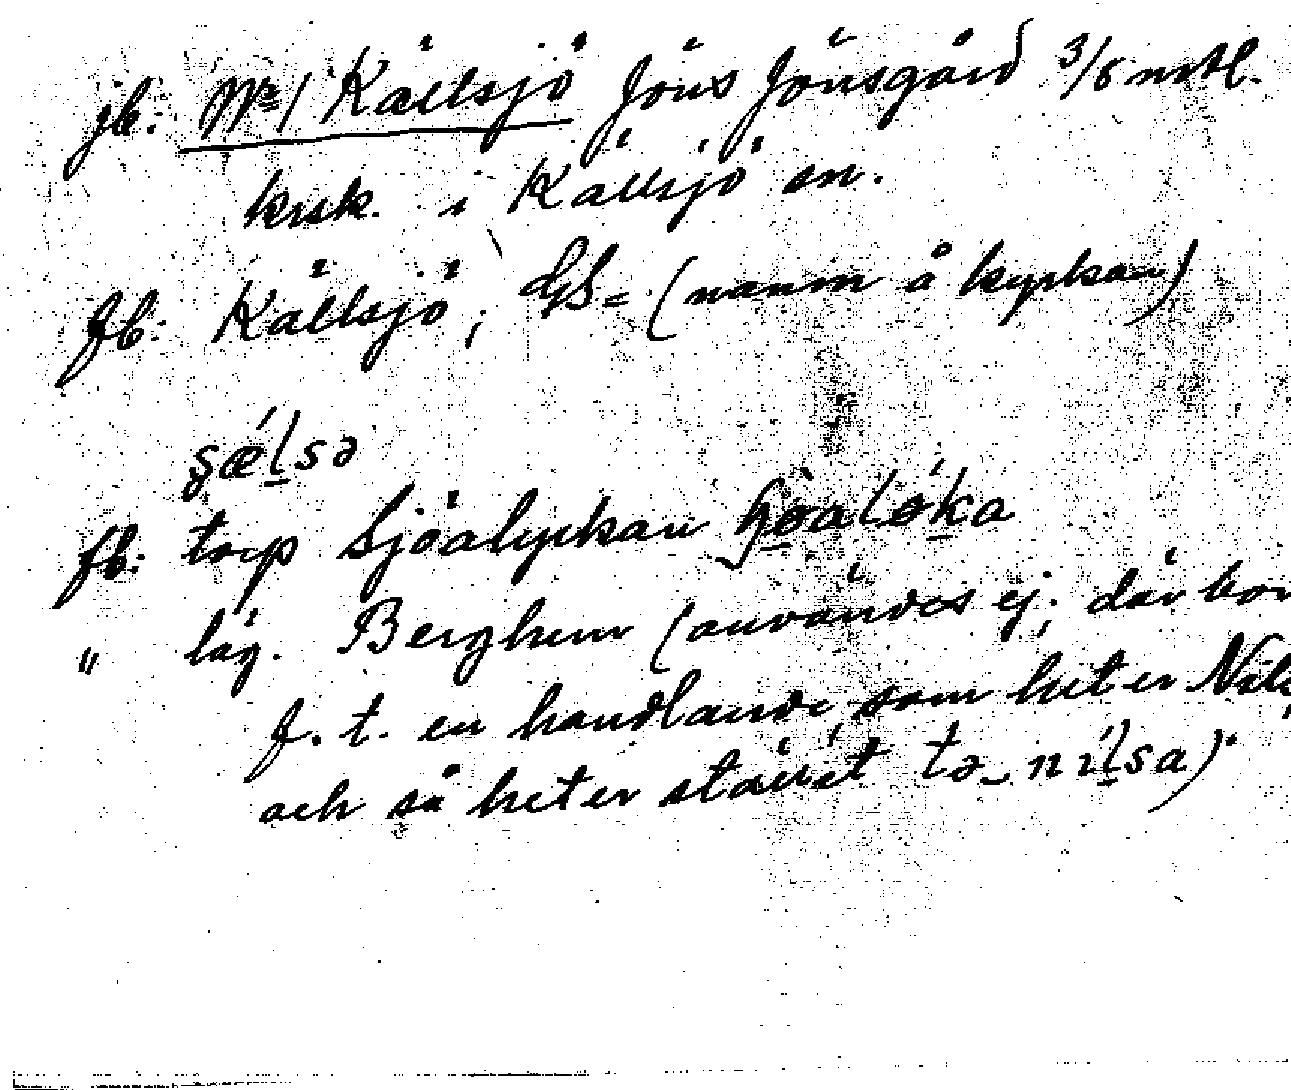 jb: Nr 1 Källsjö Jöns Jönsgård 3/8 mtl.
krsk. i Källsjö sn.
fb: Källsjö, GS= (namn å kyrkan)
s̨ǽl̠sə
fb: torp Sjöalyckan
" läg. Berghem (användes ej; där bor
f. t. en handlande, som heter Nils,
och så heter stället tə_nɪ́l̠sa)